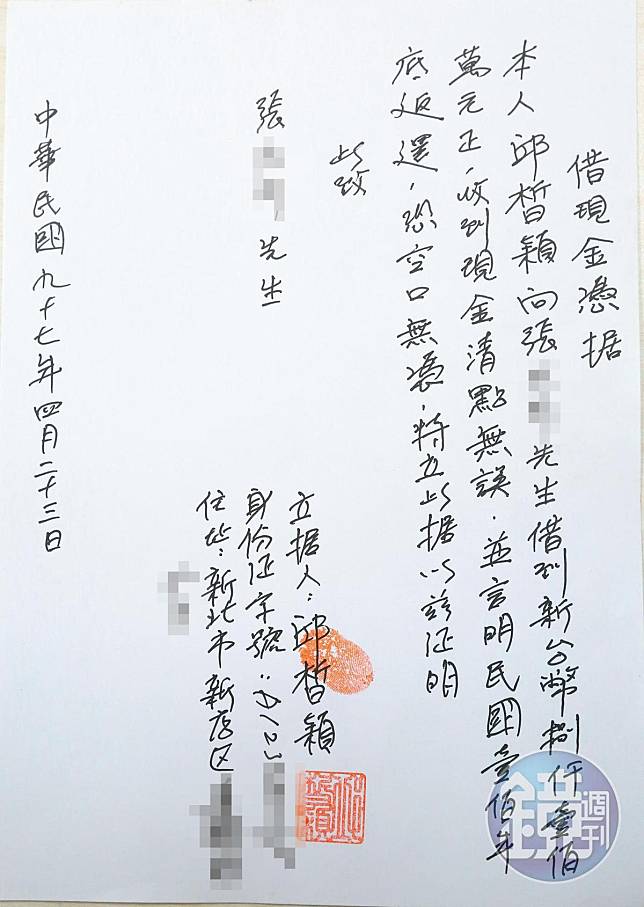 借現金憑据
本人邱晳穎向張 先生借到新台幣捌仟壹佰
萬元正,收到現金清點無誤.並言明民國壹佰年
底返還,恐空口無憑,特立此据以茲证明
此致
張 先生
立据人:邱晳穎
身份证字號:A12
住址:新北市新店区
中華民國九十七年四月二十三日
鏡週刊